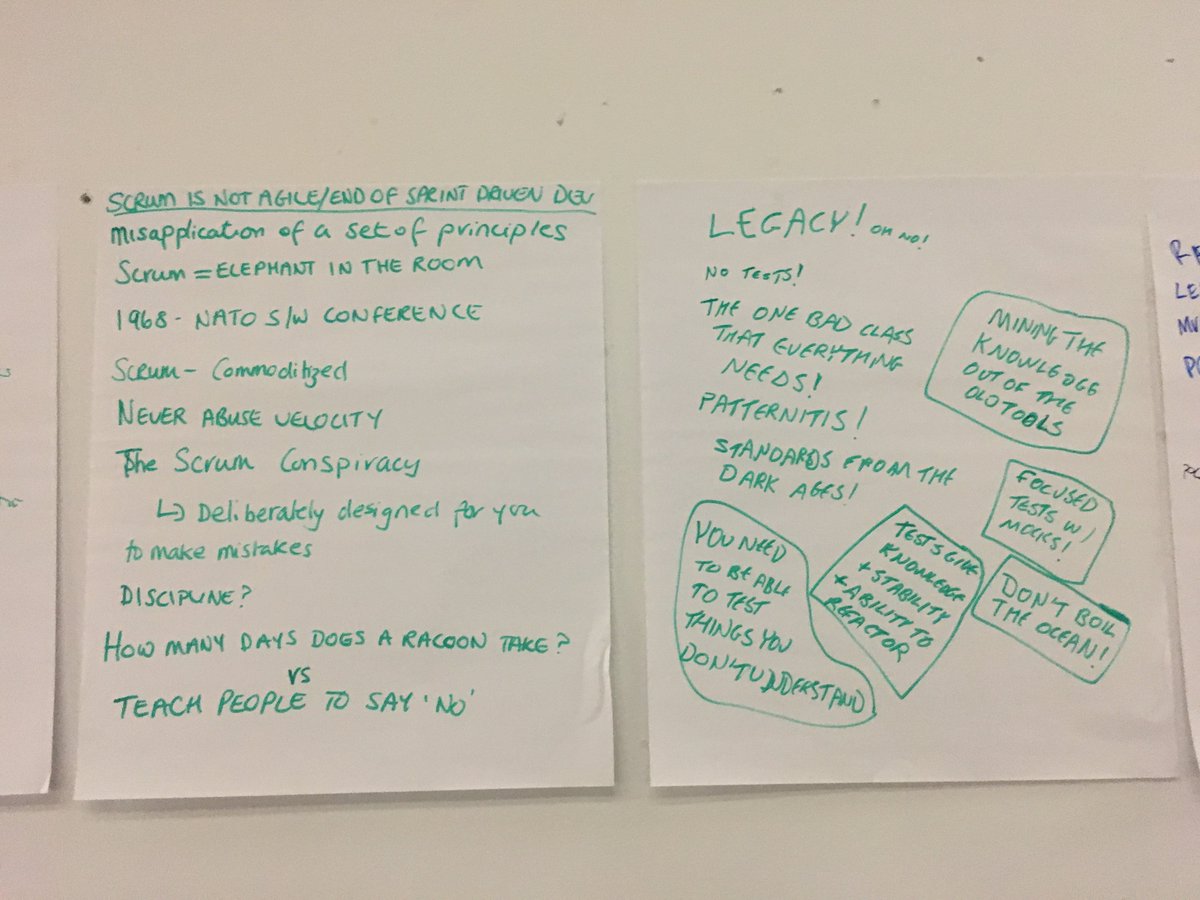 SCRUM IS NOT AGILE/END OF SPRINT DRIVEN DEV
misapplication of a set of principles
Scrum = ELEPHANT IN THE ROOM
1968 - NATO S/W CONFERENCE
Scrum - Commoditized
NEVER ABUSE VELOCITY
The Scrum Conspiracy
↳ Deliberately designed for you
to make mistakes
DISCIPLINE?
HOW MANY DAYS DOES A RACOON TAKE?
VS
TEACH PEOPLE TO SAY 'NO'
LEGACY! OH NO!
NO TESTS!
THE ONE BAD CLASS
THAT EVERYTHING
NEEDS!
PATTERNITIS!
STANDARDS FROM THE
DARK AGES!
MINING THE
KNOWLEDGE
OUT OF THE
OLD TOOLS
FOCUSED
TESTS W/
MOCKS!
YOU NEED
TO BE ABLE
TO TEST
THINGS YOU
DON'T UNDERSTAND
TESTS GIVE
KNOWLEDGE
+ STABILITY
+ ABILITY TO
REFACTOR
DON'T BOIL
THE OCEAN!